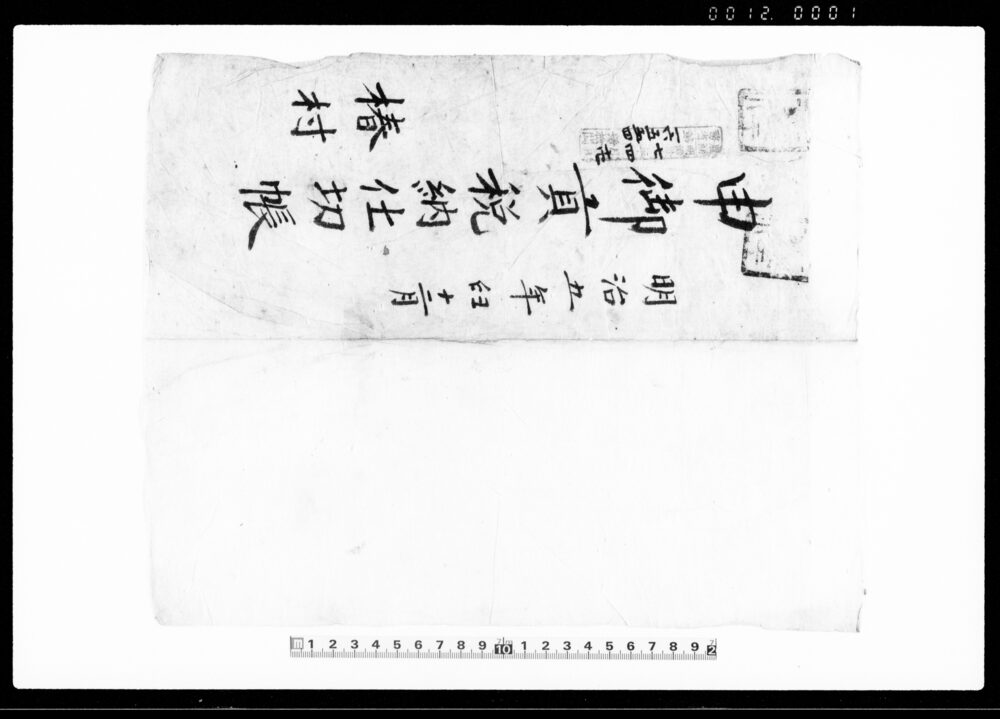 明治五年
十二月
申御貢税納仕切帳
椿村
0012.0001
1 2 3 4 5 6 7 8 9 10 1 2 3 4 5 6 7 8 9 2